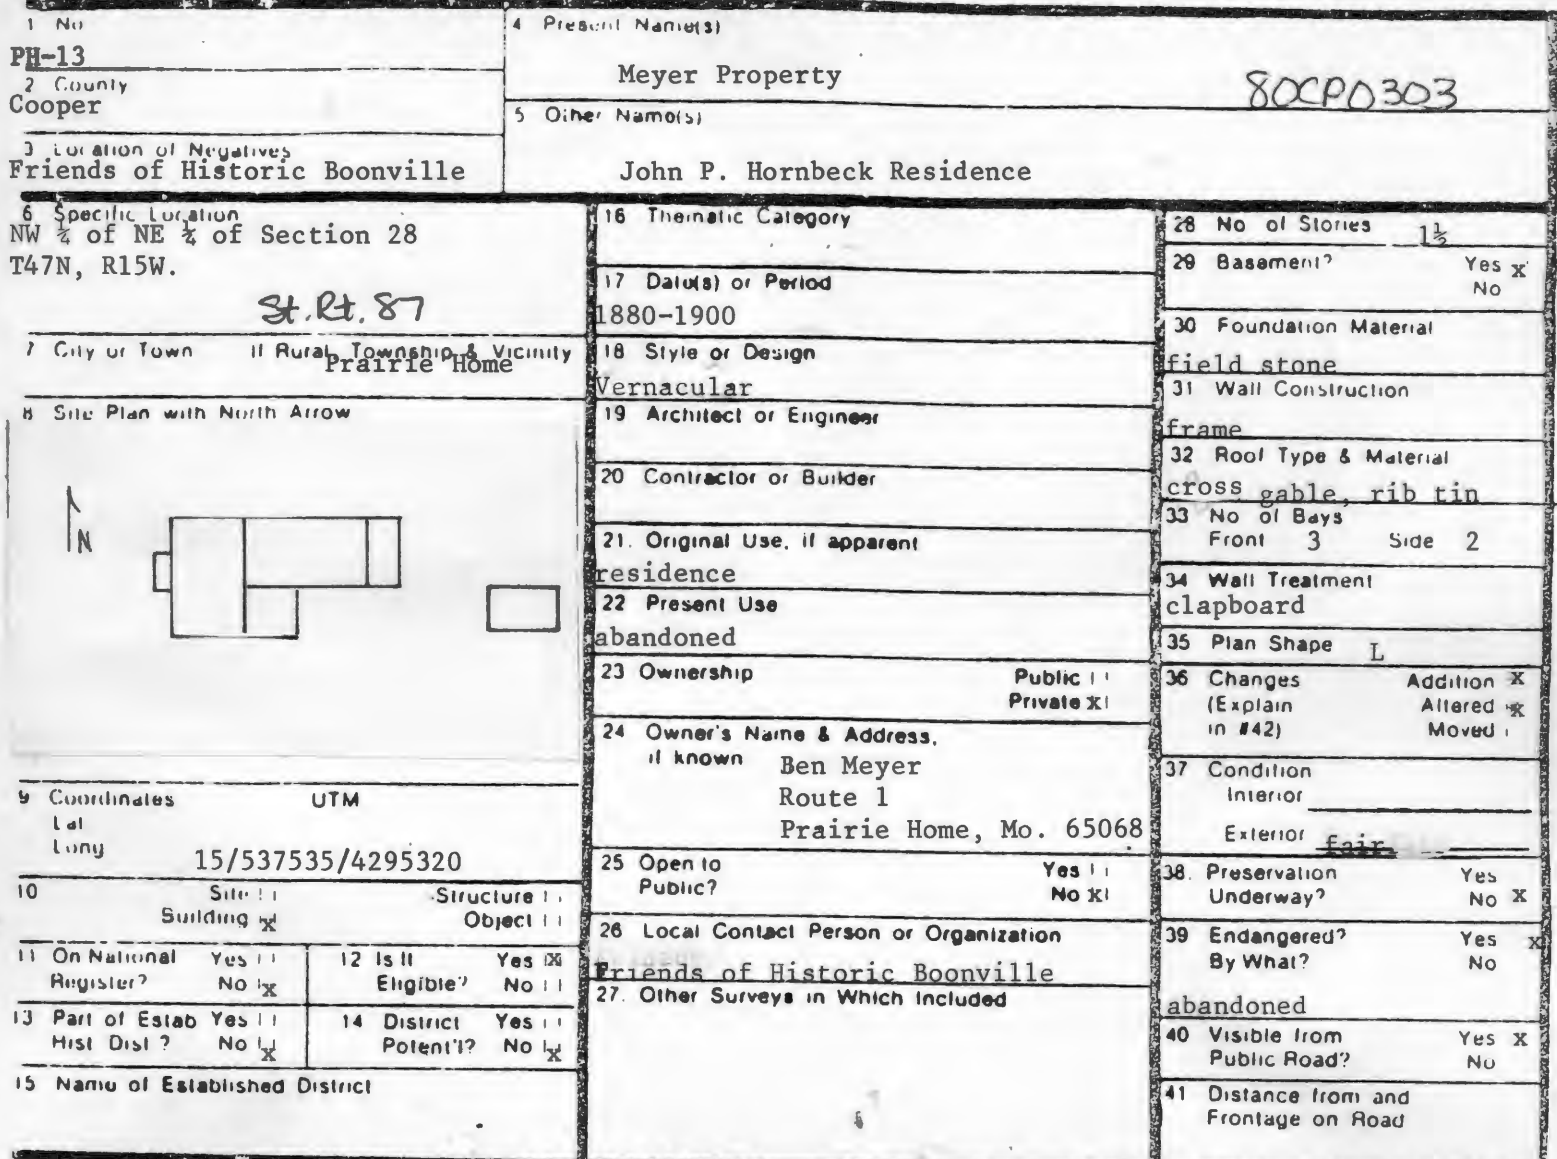 1 No
PH-13
2 County
Cooper
3 Location of Negatives
Friends of Historic Boonville
4 Present Name(s)
Meyer Property
80CP0303
5 Other Name(s)
John P. Hornbeck Residence
6 Specific Location
NW ¼ of NE ¼ of Section 28
T47N, R15W.
St. Rt. 87
7 City or Town If Rural, Township & Vicinity
Prairie Home
8 Site Plan with North Arrow
N
9 Coordinates UTM
Lat
Long
15/537535/4295320
10 Site Structure
Building x Object
11 On National Yes
Register? No x
12 Is It Yes x
Eligible? No
13 Part of Estab Yes
Hist Dist? No x
14 District Yes
Potent'l? No x
15 Name of Established District
16 Thematic Category
17 Date(s) or Period
1880-1900
18 Style or Design
Vernacular
19 Architect or Engineer
20 Contractor or Builder
21. Original Use, if apparent
residence
22 Present Use
abandoned
23 Ownership Public
Private x
24 Owner's Name & Address,
if known
Ben Meyer
Route 1
Prairie Home, Mo. 65068
25 Open to Yes
Public? No x
26 Local Contact Person or Organization
Friends of Historic Boonville
27. Other Surveys in Which Included
28 No of Stories 1½
29 Basement? Yes x
No
30 Foundation Material
field stone
31 Wall Construction
frame
32 Roof Type & Material
cross gable, rib tin
33 No of Bays
Front 3 Side 2
34 Wall Treatment
clapboard
35 Plan Shape L
36 Changes Addition x
(Explain Altered x
in #42) Moved
37 Condition
Interior
Exterior fair
38. Preservation Yes
Underway? No x
39 Endangered? Yes x
By What? No
abandoned
40 Visible from Yes x
Public Road? No
41 Distance from and
Frontage on Road